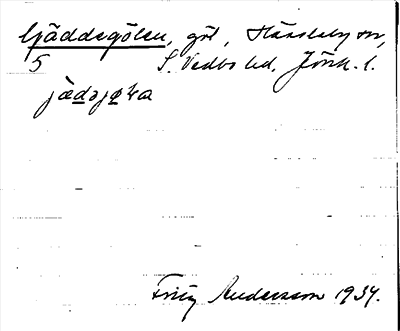 Gäddegölen, göl, Hässleby sn,
5 S. Vedbo hd, Jönk. l.
Fritz Andersson 1934.